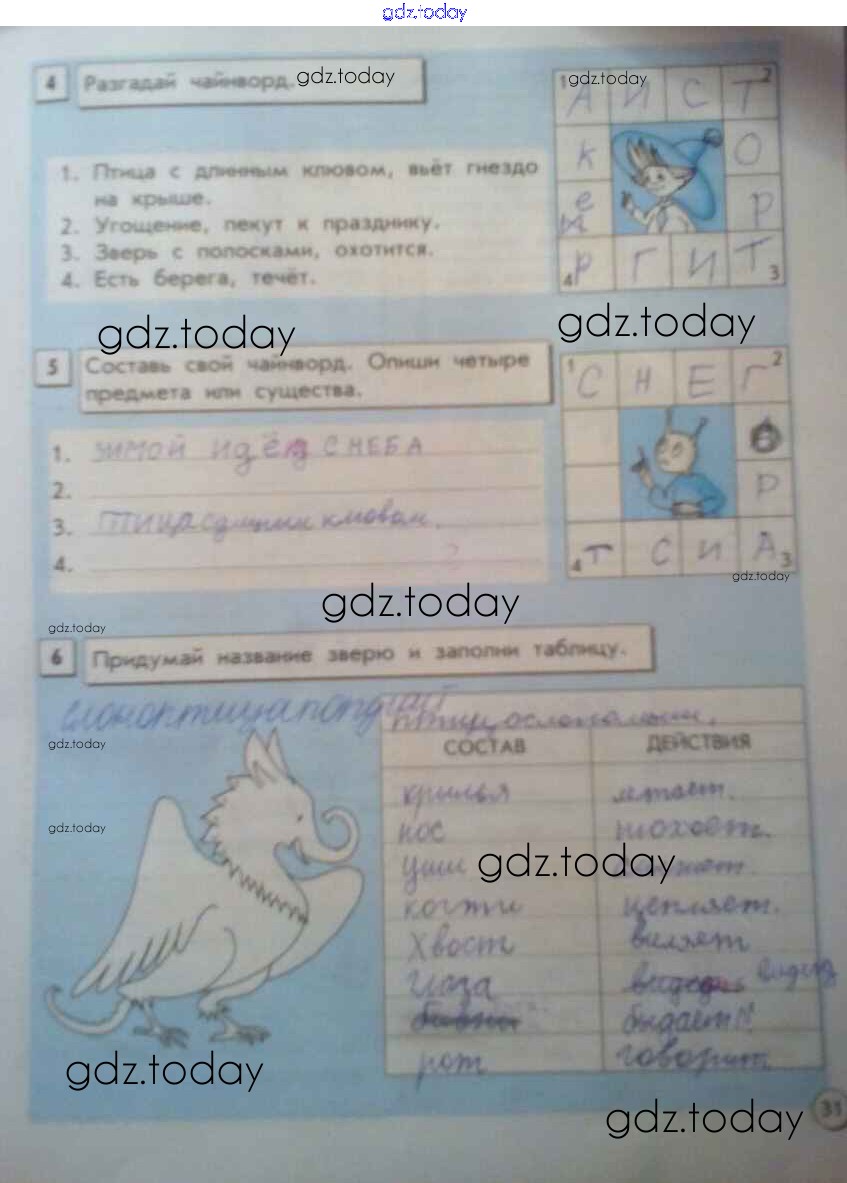 gdz.today
4 Разгадай чайнворд. gdz.today
gdz.today
1 А И С Т 2
К О
е Р
ы
4 Р Г И Т 3
1. Птица с длинным клювом, вьёт гнездо
на крыше.
2. Угощение, пекут к празднику.
3. Зверь с полосками, охотится.
4. Есть берега, течёт.
gdz.today
gdz.today
5 Составь свой чайнворд. Опиши четыре
предмета или существа.
1 С Н Е Г 2
Р
4 Т С И А 3
1. ЗИМОЙ ИДЁТ С НЕБА
2.
3. ПТИЦА с клювом.
4.
gdz.today
gdz.today
gdz.today
6 Придумай название зверю и заполни таблицу.
gdz.today
СОСТАВ ДЕЙСТВИЯ
крылья летает.
нос нюхает.
уши
gdz.today
когти цепляет.
хвост виляет
глаза
рот говорит
gdz.today
gdz.today
gdz.today
31